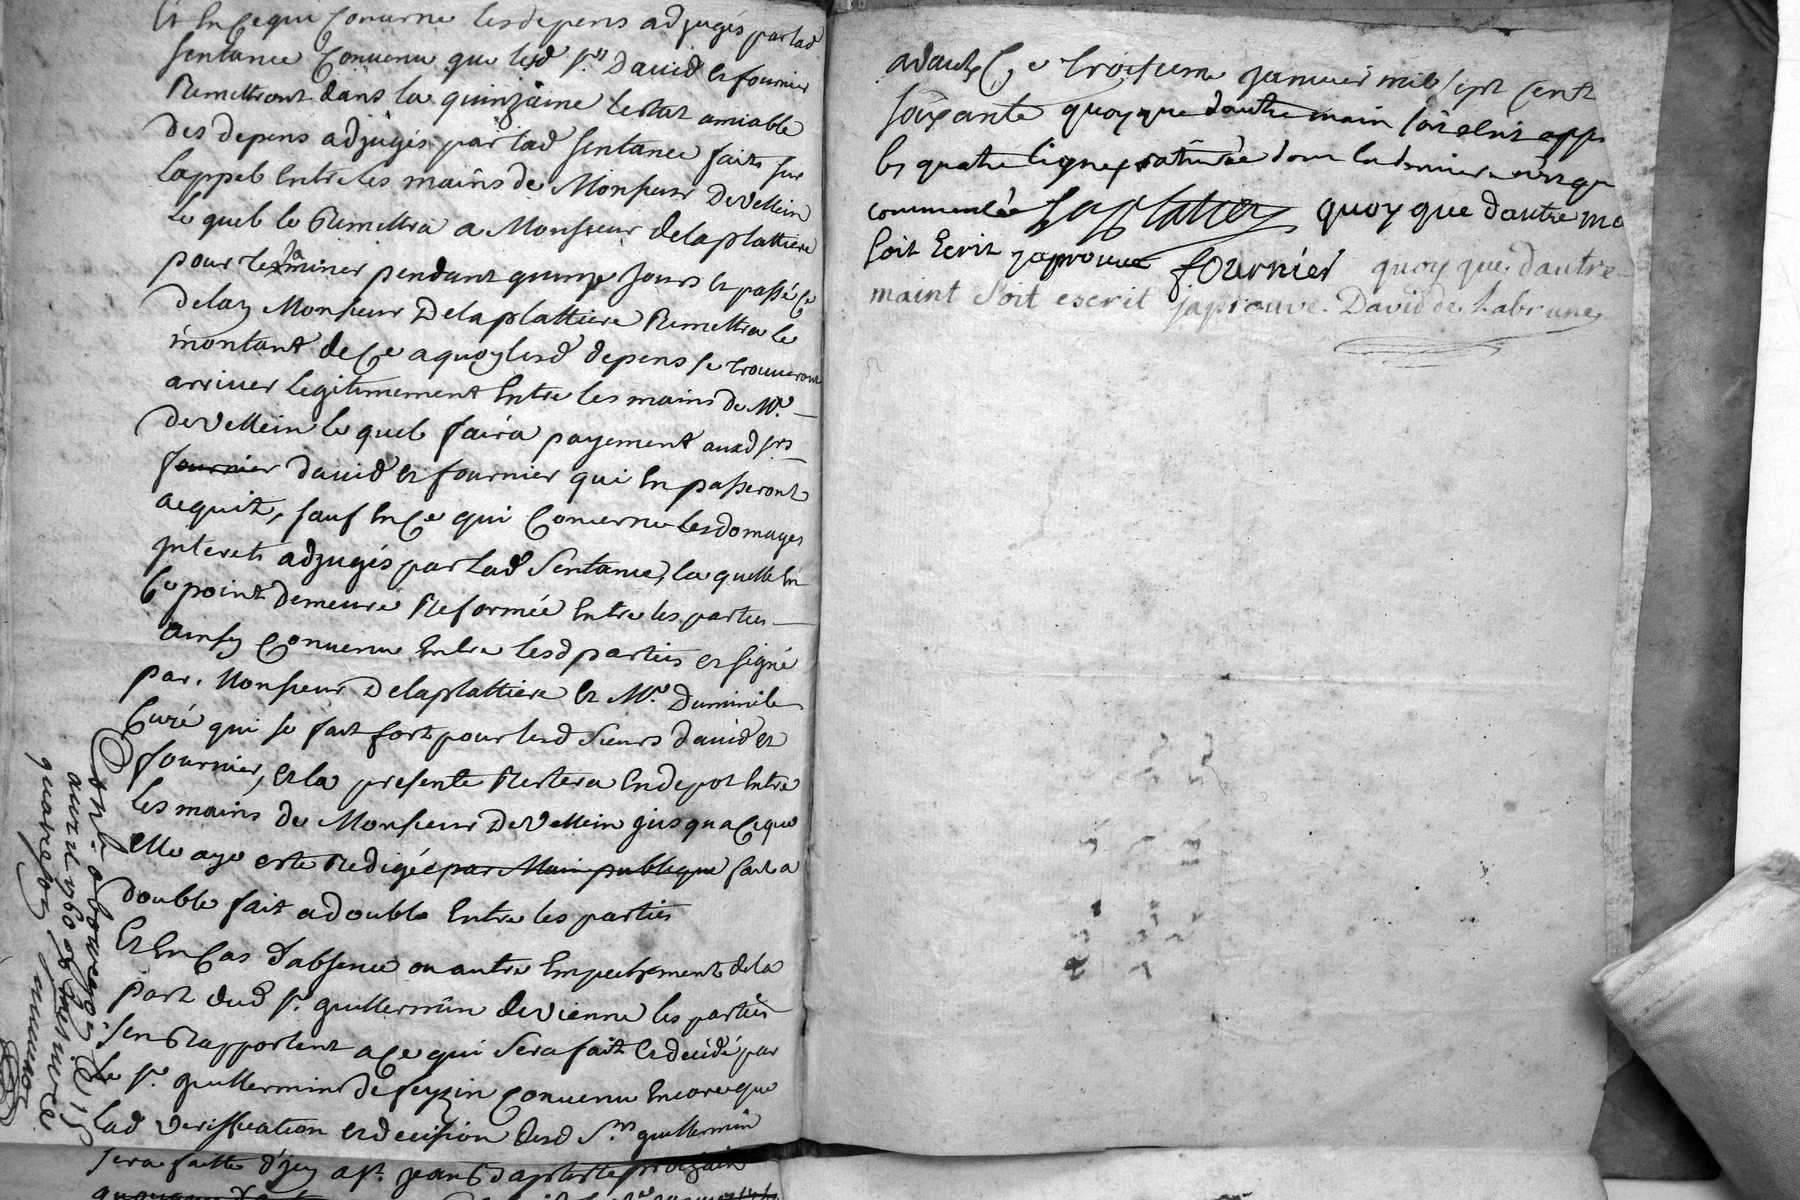 Et En Ce qui Concerne les depens adjugés par lad
Sentance Convenu que lesd Srs David et fournier
Remettront dans la quinzaine lestat amiable
des depens adjugés par lad Sentance faits sur
lappel Entre les mains de Monsieur DeVellein
Le quel le Remettra a Monsieur delaplattiere
pour lexaminer pendant quinze Jours et passé Ce
delay Monsieur Delaplattiere Remettra le
montant de Ce a quoy lesd depens se trouveront
arriver legitimement Entre les mains de Mr
DeVellein le quel faira payement auxd Srs
fournier david et fournier qui En passeront
acquit, sauf En Ce qui Concerne les domages
jnterets adjugés par lad Sentance, la quelle En
Ce point demeure Reformée Entre les parties
ainsy Convenu Entre lesd parties et signé
par Monsieur Delaplattiere et Mr Duminil
Curé qui se fait fort pour lesd Sieurs david et
fournier, et la presente Restera En depot Entre
les mains de Monsieur DeVellein jusqu a Ce que
Elle aye esté Redigée par Main publique
double fait a double Entre les parties
Et En Cas d'absence ou autre Empechement de la
part dud Sr guillermin de vienne les parties
s'en Rapportent a Ce qui Sera fait et decidé par
Le Sr guillermin de feyzin Convenu Encore que
lad veriffication et decision desd Srs guillermin
sera faitte d'jcy a St jean Baptiste prochain
Conlé a bourgoin le 15
avril 1760
quatre sols
Ce troisieme janvier mil sept Cent
soixante quoy que d'autre main soit ecrit app
les quatre lignes raturées dont la derniere
commencée Laplatiere quoy que d'autre ma
soit Ecrit japrouve fournier quoy que d'autre
maint soit escrit japrouve. David de Labrune